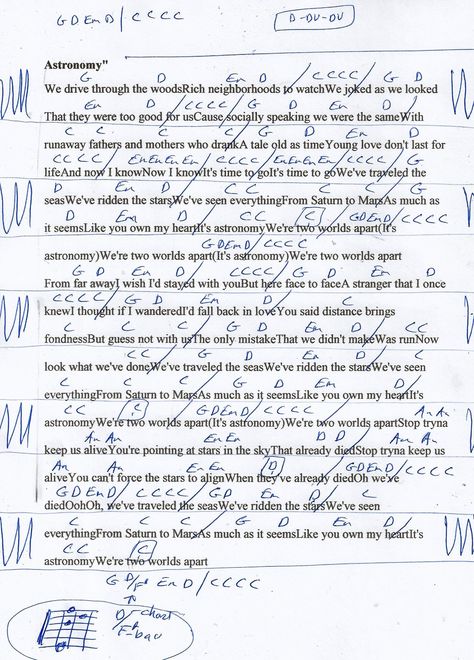 G D Em D / C C C C
D-DU-DU
Astronomy"
G D Em D / C C C C / G D
We drive through the woodsRich neighborhoods to watchWe joked as we looked
Em D / C C C C / G D Em D
That they were too good for usCause socially speaking we were the sameWith
C C C C G D Em D
runaway fathers and mothers who drankA tale old as timeYoung love don't last for
C C C C / Em Em Em Em / C C C C / Em Em Em Em / C C C C / G
lifeAnd now I knowNow I knowIt's time to goIt's time to goWe've traveled the
D Em D C C C C G
seasWe've ridden the starsWe've seen everythingFrom Saturn to MarsAs much as
D Em D C C C / G D Em D / C C C C
it seemsLike you own my heartIt's astronomyWe're two worlds apart(It's
G D Em D / C C C C
astronomy)We're two worlds apart(It's astronomy)We're two worlds apart
G D Em D C C C C / G D Em D
From far awayI wish I'd stayed with youBut here face to faceA stranger that I once
C C C C / G D Em D C
knewI thought if I wanderedI'd fall back in loveYou said distance brings
C C C G D Em D C C
fondnessBut guess not with usThe only mistakeThat we didn't makeWas runNow
C C G D Em D C
look what we've doneWe've traveled the seasWe've ridden the starsWe've seen
C C C G D Em D
everythingFrom Saturn to MarsAs much as it seemsLike you own my heartIt's
C C C G D Em D / C C C C Am Am
astronomyWe're two worlds apart(It's astronomy)We're two worlds apartStop tryna
Am Am Em Em D D Am Am
keep us aliveYou're pointing at stars in the skyThat already diedStop tryna keep us
Am Am Em Em D G D Em D / C C C C
aliveYou can't force the stars to alignWhen they've already diedOh we've
G D Em D / C C C C / G D Em D C
diedOohOh, we've traveled the seasWe've ridden the starsWe've seen
C C C G D Em D
everythingFrom Saturn to MarsAs much as it seemsLike you own my heartIt's
C C C
astronomyWe're two worlds apart
G D/F# Em D / C C C C
D/F#